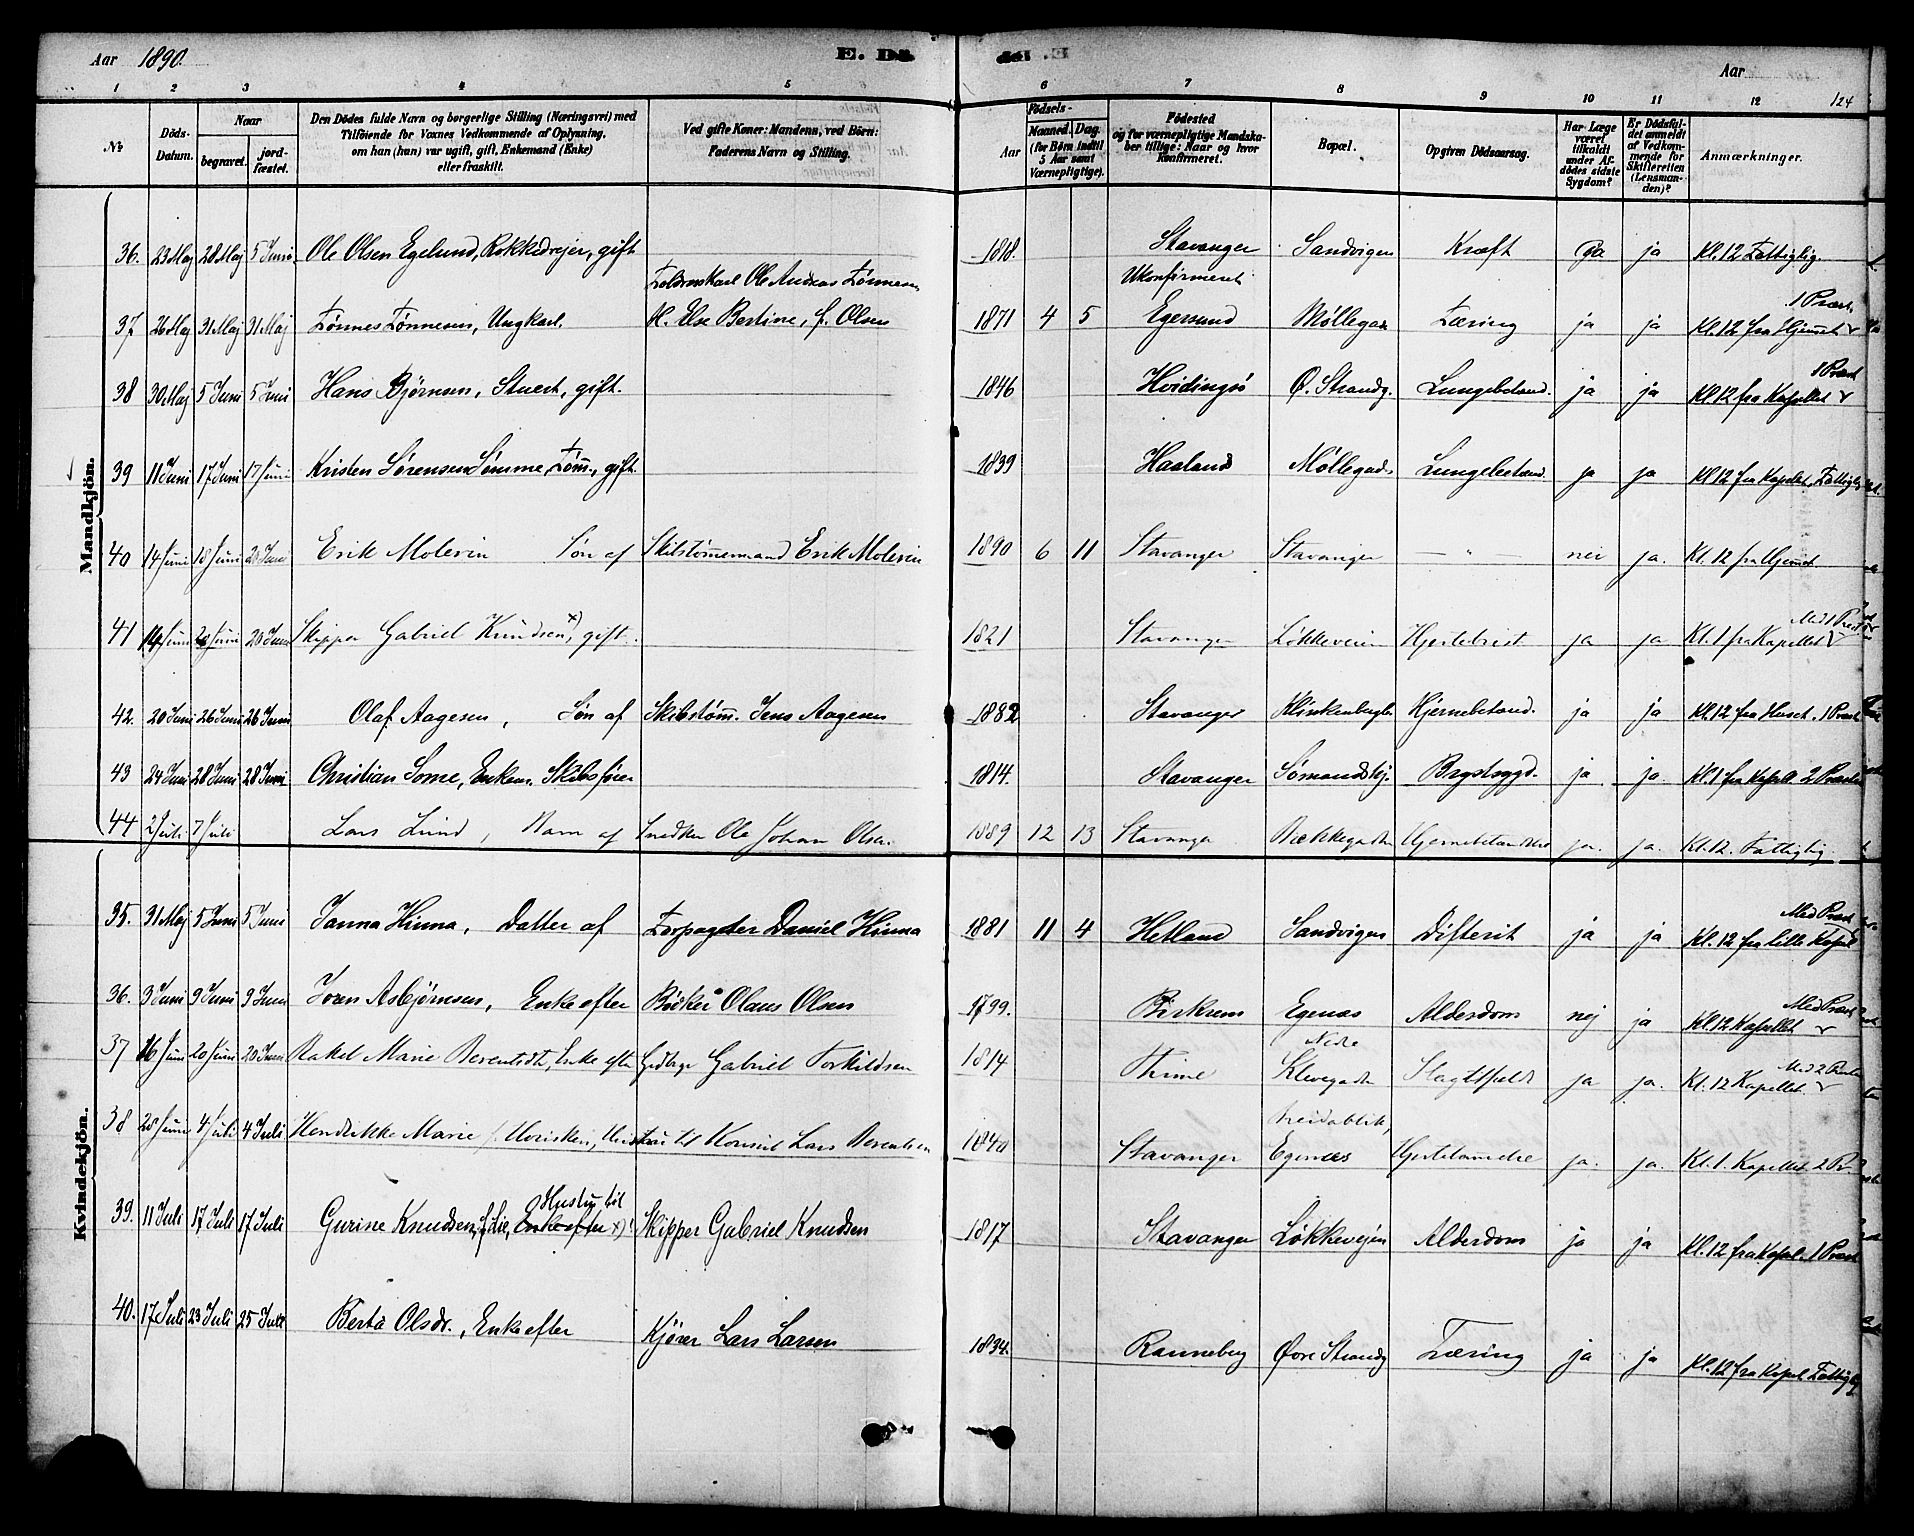 Aar 1890. E. Dö E. Dö Aar 124
1 2 3 4 5 6 7 8 9 10 11 12
№ Döds-Datum. Naar begravet. jordfæstet. Den Dödes fulde Navn og borgerlige Stilling (Næringsvei) med Tilföiende for Voxnes Vedkommende af Oplysning, om han (hun) var ugift, gift, Enkemand (Enke) eller fraskilt. Ved gifte Koner: Mandens, ved Börn: Faderens Navn og Stilling. Födsels- Aar Maaned. Dag. (for Börn indtil 5 Aar samt Værnepligtige). Födested og for værnepligtige Mandskaber tillige: Naar og hvor Konfirmeret. Bopæl. Opgiven Dödsaarsag. Har Læge været tilkaldt under Afdödes sidste Sygdom? Er Dödsfaldet anmeldt af Vedkommende for Skifteretten (Lensmanden)? Anmærkninger.
Mandkjön.
36. 23 Maj 28 Maj 5 Juni Ole Olsen Egelund, Rokkedrejer, gift 1818. Stavanger Sandvigen Kræft ja ja Kl. 12 Fattiglig.
37 26 Maj 31 Maj 31 Maj Tönnes Tönnesen, Ungkarl. Ole Andreas Tönnesen H. Else Bertine, f. Olsen 1871 4 5 Ukonfirmeret Egersund Møllegad Tæring ja ja Kl. 12 fra Hjemmet 1 Præst
38 30 Maj 5 Juni 5 Juni Hans Bjørnsen, Stuert, gift. 1846 Hvidingsö Ö. Strandg. Lungebetænd. ja ja Kl. 12 fra Kapellet 1 Præst
39 11 Juni 17 Juni 17 Juni Kristen Sørensen Sømme, Tøm., gift 1839 Haaland Møllegad Lungebetænd. ja ja Kl 12 fra Kapellet, Fattiglig
40 14 Juni 18 Juni 20 Juni Erik Molevin Søn af Skibstømmermand Erik Molevin 1890 6 11 Stavanger Stavanger — " — nei ja. Kl. 12 fra Hjemmet
41 14 Juni 20 Juni 20 Juni Skipper Gabriel Knudsen x), gift. 1821 Stavanger Løkkeveien Hjertebrist ja ja Kl. 1 fra Kapellet Med 1 Præst
42. 20 Juni 26 Juni 26 Juni Olaf Aagesen, Søn af Skibstøm. Jens Aagesen 1882 Stavanger Klinkenbergb. Hjernebetænd. ja ja Kl. 12 fra Huset. 1 Præst
43 24 Juni 28 Juni 28 Juni Christian Some, Enkem. Skibsfører 1814. Stavanger Sømandshj. Brystsygd. ja ja. Kl. 1 fra Kapell. 2 Præster
44 2 Juli 7 Juli Lars Lund, Barn af Snedker Ole Johan Olsen. 1889 12 13 Stavanger Bækkegaden Hjernebetændelse ja. ja. Kl. 12. Fattiglig
Kvindekjön.
35. 31 Maj 5 Juni 5 Juni Janna Hinna, Datter af Forpagter Daniel Hinna 1881 11 4 Hetland Sandvigen Difterit ja ja Kl. 12 fra lille Kapel Med Præst
36. 3 Juni 9 Juni 9 Juni Joren Asbjørnsen, Enke efter Bødker Olaus Olsen 1799. Birkrem Egenæs Alderdom nej ja Kl 12 Kapellet Med Præst
37 16 Juni 20 Juni 20 Juni Rakel Marie Berentsdt, Enke efter Gabriel Torkildsen 1814 Thime Nedre Klevegade Slagtilfælde ja ja. Kl. 12 Kapellet. Med 2 Præster
38 28 Juni 4 Juli 4 Juli Hendrikke Marie f. Hustru til Konsul Lars Berentsen 1840 Stavanger Egenæs ja. ja. Kl. 1. Kapellet 2 Pr.
39. 11 Juli 17 Juli 17 Juli Gurine Knudsen, f. Lie, Enke efter Hustru til x) Skipper Gabriel Knudsen 1817 Stavanger Løkkevejen Alderdom ja ja Kl. 12 fra Kapel. 1 Præst
40. 17 Juli 23 Juli 25 Juli Berta Olsdr., Enke efter Kjører Lars Larsen 1834. Ranneberg Øvre Strandg Tæring ja ja Kl. 12 fra Kapel Fattiglig